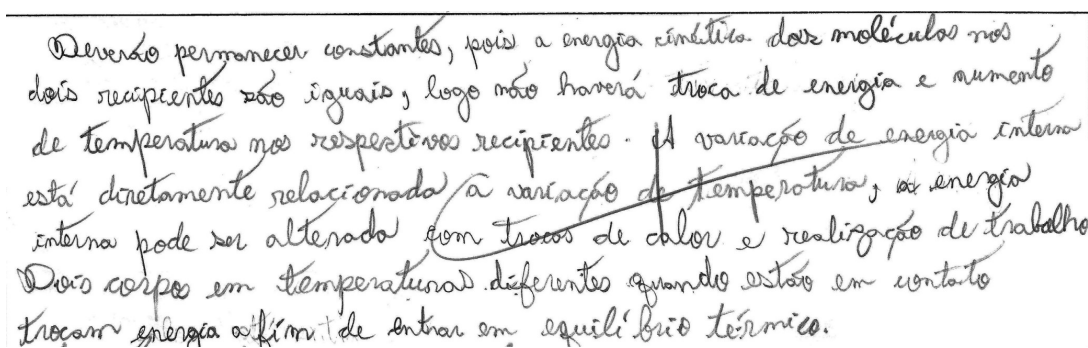 Deverão permanecer constantes, pois a energia cinética das moléculas nos
dois recipientes são iguais, logo não haverá troca de energia e aumento
de temperatura nos respectivos recipientes. A variação de energia interna
está diretamente relacionada a variação de temperatura, a energia
interna pode ser alterada com trocas de calor e realização de trabalho
Dois corpos em temperaturas diferentes quando estão em contato
trocam energia a fim de entrar em equilíbrio térmico.